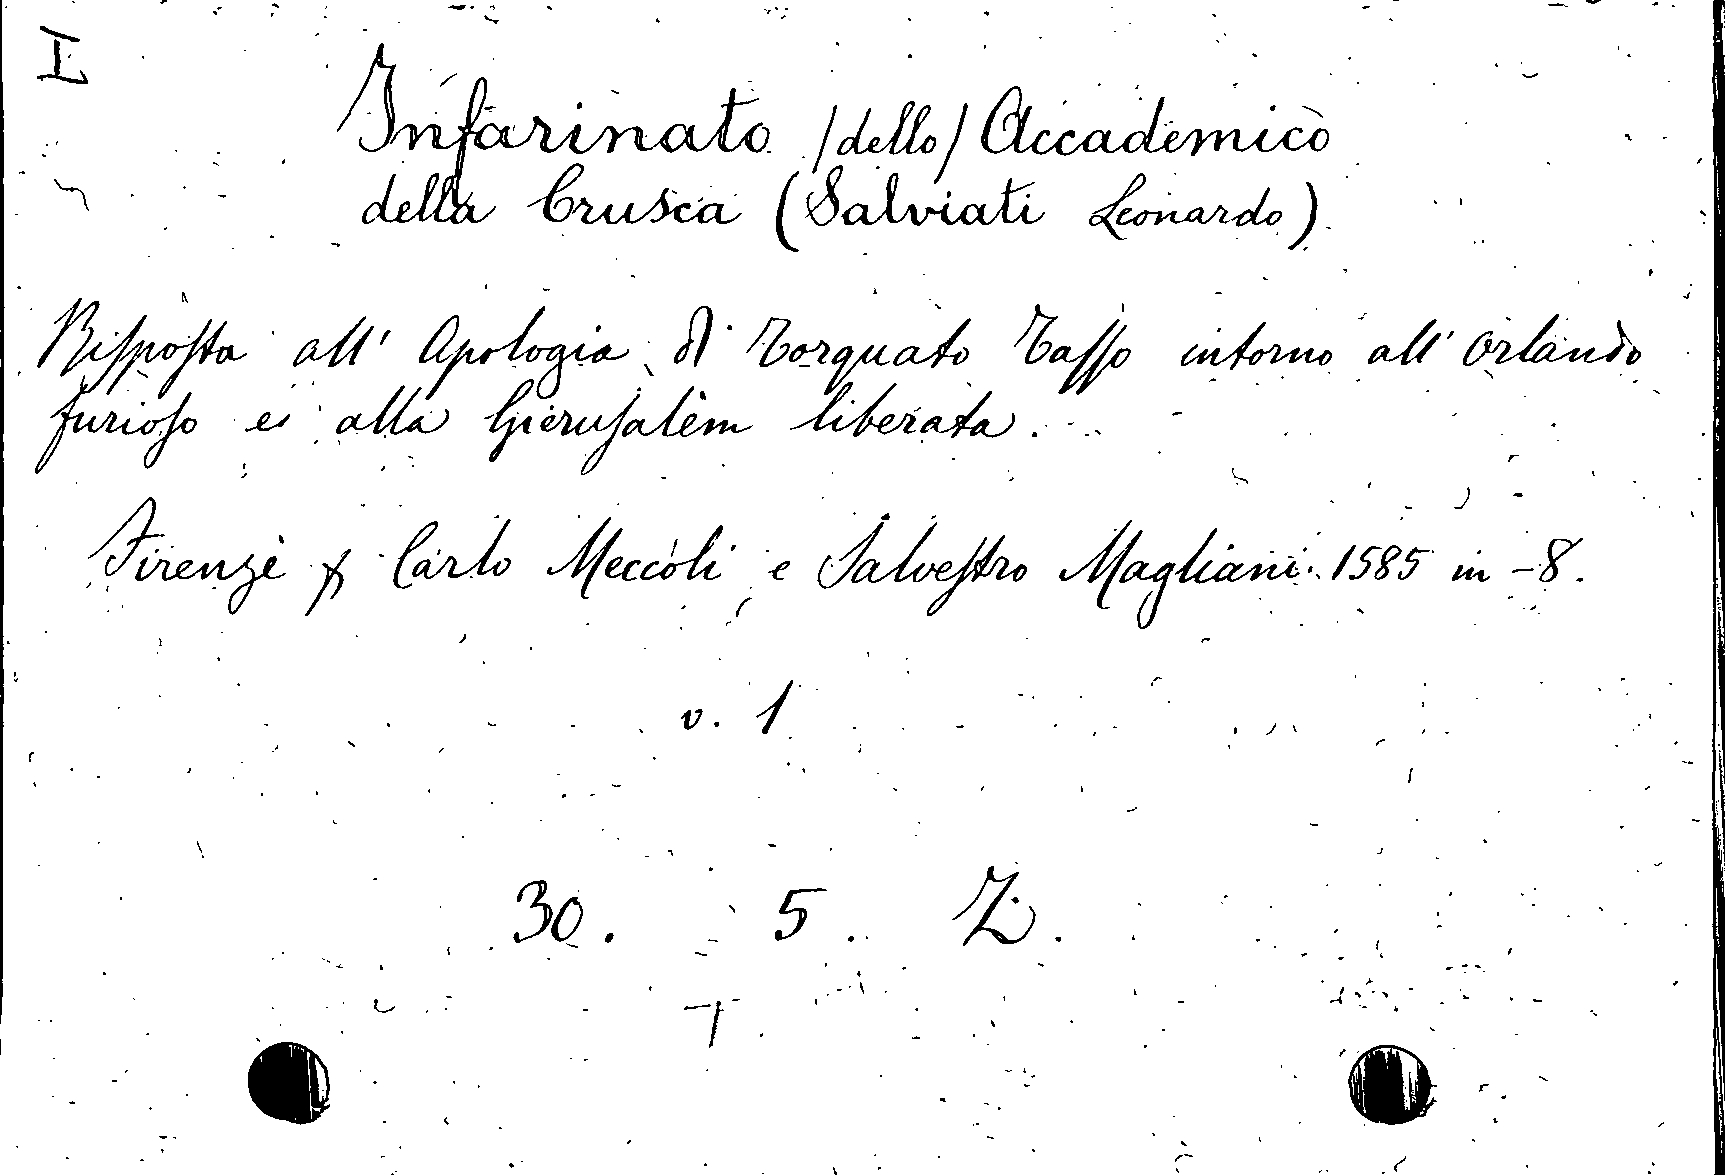 I
Infarinato /dello/ Accademico
della Crusca (Salviati Leonardo)
Riſpoſta all' Apologia di Torquato Taſſo intorno all' Orlando
furioſo e alla Gieruſalem liberata.
Firenze p Carlo Meccoli, e Salveſtro Magliani. 1585 in-8.
v. 1
30. 5. Z.